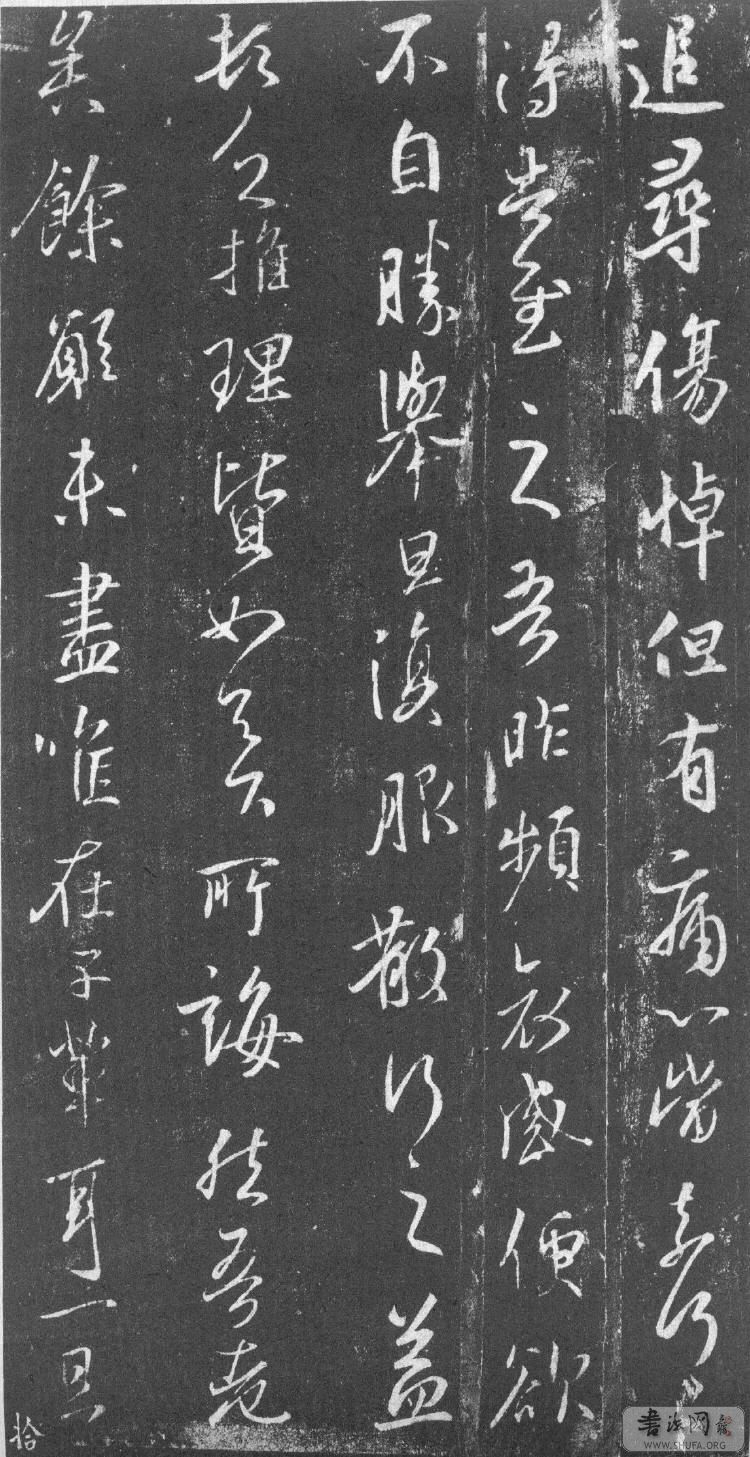 追尋傷悼但有痛心當奈何〻
得告慰之吾昨頻哀感便欲
不自勝舉旦復服散行之益
頓乏推理皆如足下所誨然吾老
矣餘願未盡唯在子輩耳一旦
拾
書法网
WWW.SHUFA.ORG